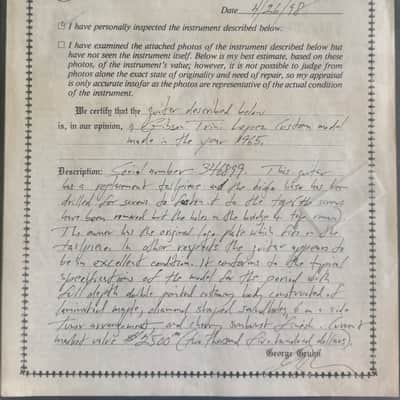 Date 4/26/98
I have personally inspected the instrument described below.
I have examined the attached photos of the instrument described below but
have not seen the instrument itself. Below is my best estimate, based on these
photos, of the instrument's value; however, it is not possible to judge from
photos alone the exact state of originality and need of repair, so my appraisal
is only accurate insofar as the photos are representative of the actual condition
of the instrument.
We certify that the guitar described below
is, in our opinion, a Gibson Trini Lopez Custom model
made in the year 1965.
Description: Serial number 346899. This guitar
has a replacement tailpiece and the bridge base has been
drilled for screws to fasten it to the top (the screws
have been removed but the holes in the bridge & top remain)
The owner has the original logo plate which fits in the
tailpiece. In other respects the guitar appears to
be in excellent condition. It conforms to the typical
specifications of the model for the period with
full depth double pointed cutaway body constructed of
laminated maple, diamond shaped soundholes, 6 on a side
tuner arrangement, and cherry sunburst finish. Current
market value $2500.00 (two thousand five hundred dollars).
George Gruhn